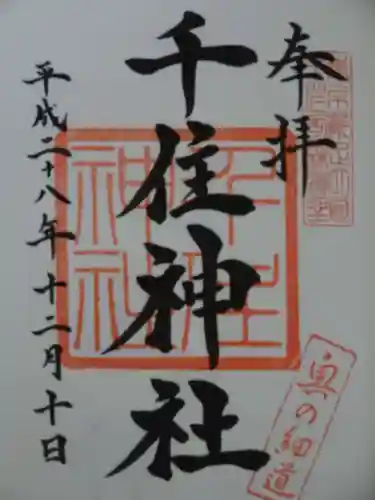 奉拝
千住神社
平成二十八年十二月十日
千住神社
奥の細道